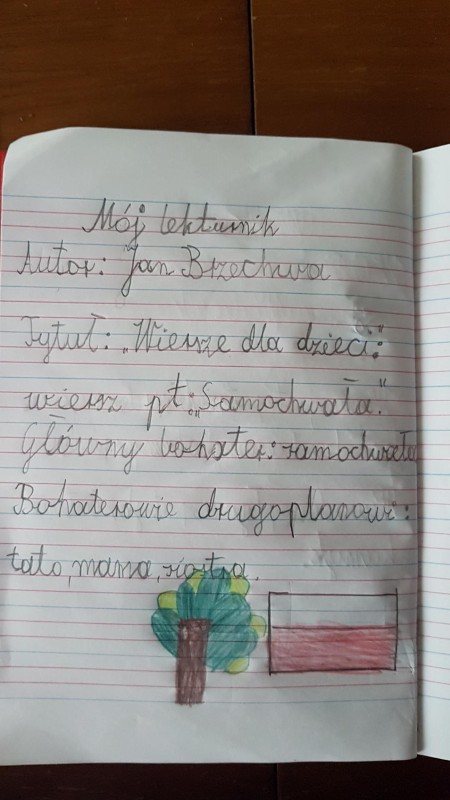 Mój lekturnik
Autor: Jan Brzechwa
Tytuł: „Wiersze dla dzieci:"
wiersz pt: „Samochwała."
Główny bohater: samochwała
Bohaterowie drugoplanowi:
tato, mama, siostra.